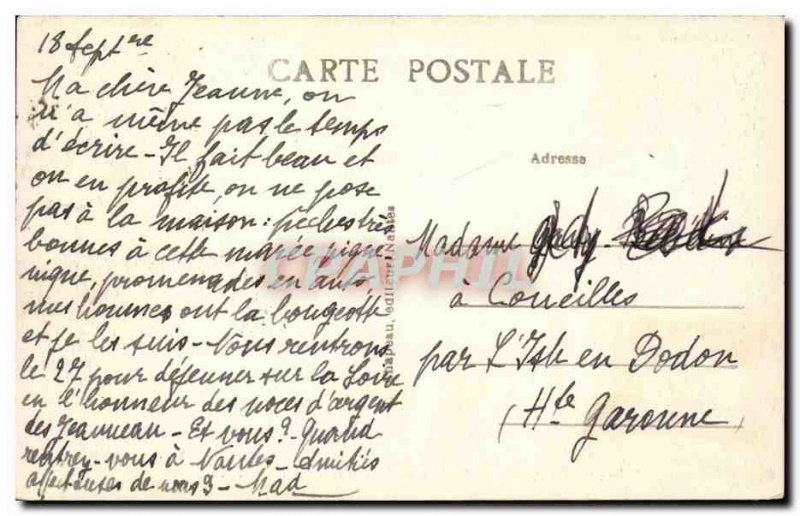 18 Septre
Ma chère Jeanne, on
n'a même pas le temps
d'écrire - Il fait beau et
on en profite, on ne pose
pas à la maison : pêches très
bonnes à cette marée, pique
nique, promenades en auto,
mes hommes ont la bougeotte
et je les suis - Nous rentrons
le 27 pour déjeuner sur la Loire
en l'honneur des noces d'argent
des Jeanneau - Et vous ? Quand
rentrez-vous à Nantes - Amitiés
affectueuses de nous 3 - Mad
CARTE POSTALE
Adresse
Chapeau, éditeur, Nantes
Madame
à Coueilles
par L'Isle en Dodon
(Hte Garonne)
CPAPHIL